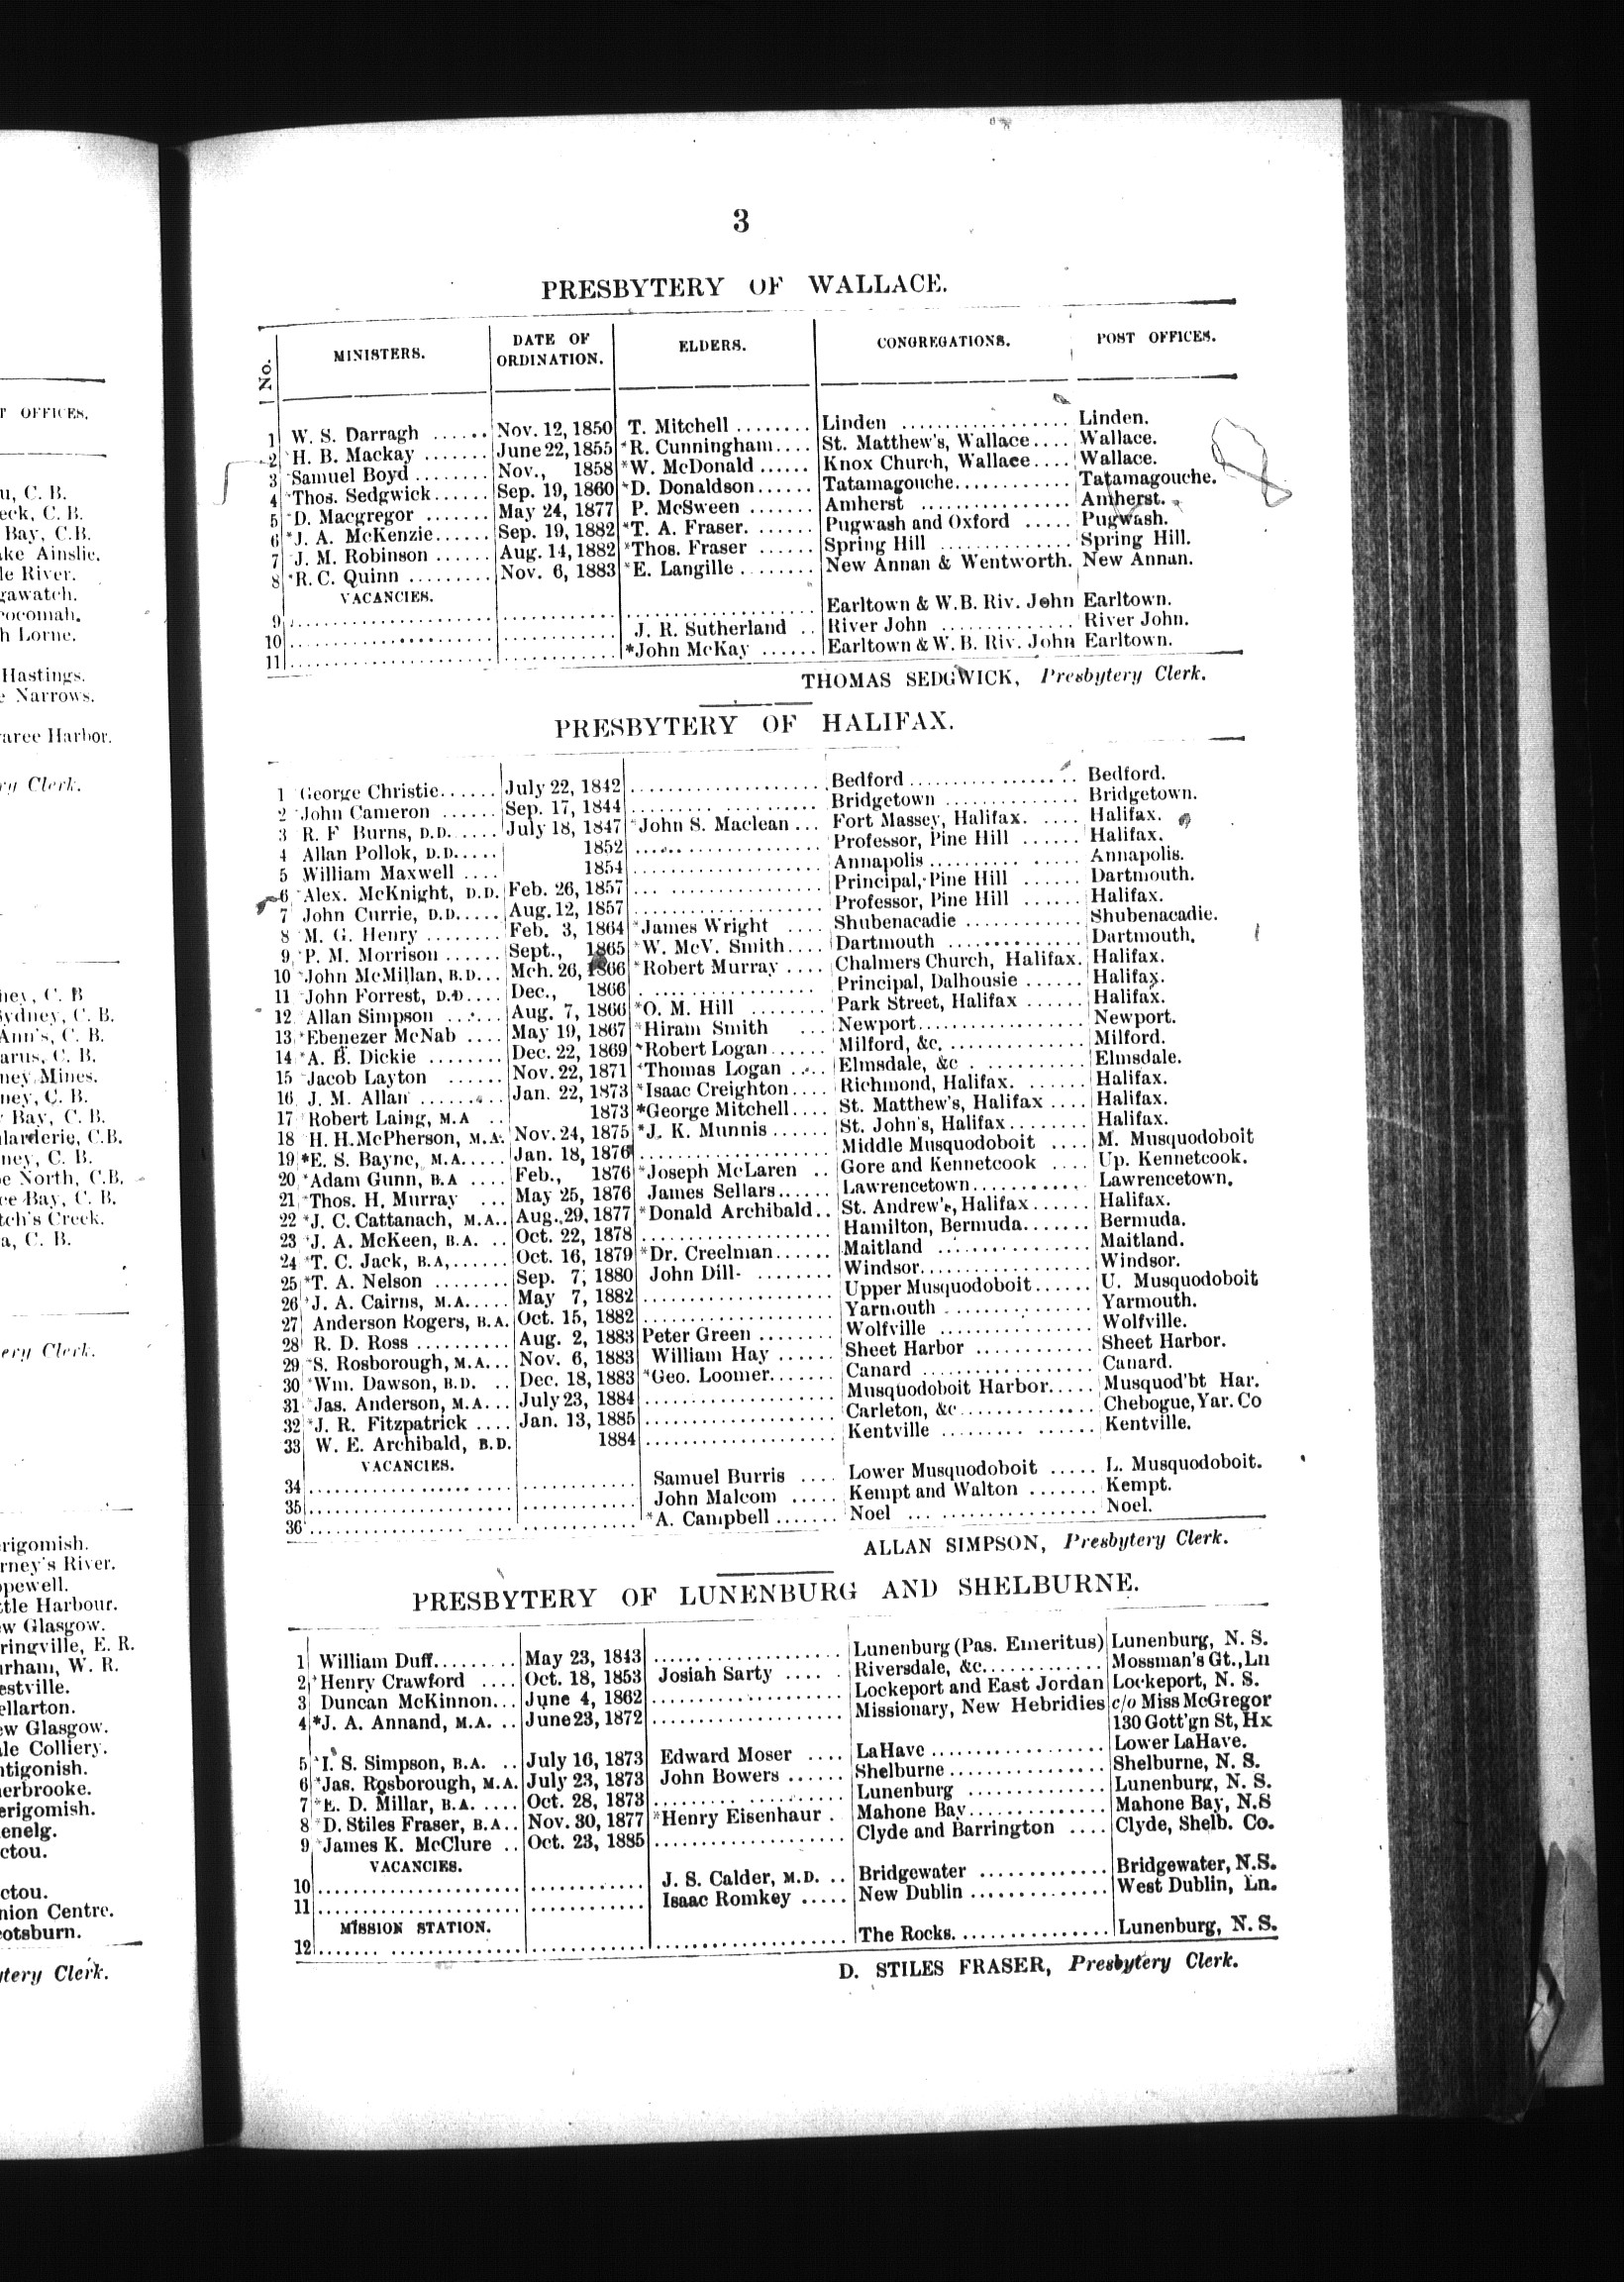 3
PRESBYTERY OF WALLACE.
No. MINISTERS. DATE OF ORDINATION. ELDERS. CONGREGATIONS. POST OFFICES.
1 W. S. Darragh ...... Nov. 12, 1850 T. Mitchell ........ Linden .................. Linden.
2 *H. B. Mackay ....... June 22, 1855 *R. Cunningham.... St. Matthew's, Wallace.... Wallace.
3 *Samuel Boyd ........ Nov., 1858 *W. McDonald ...... Knox Church, Wallace.... Wallace.
4 *Thos. Sedgwick...... Sep. 19, 1860 *D. Donaldson...... Tatamagouche............ Tatamagouche.
5 *D. Macgregor ....... May 24, 1877 P. McSween ........ Amherst ................ Amherst.
6 *J. A. McKenzie...... Sep. 19, 1882 *T. A. Fraser. ...... Pugwash and Oxford ..... Pugwash.
7 J. M. Robinson ...... Aug. 14, 1882 *Thos. Fraser ...... Spring Hill .............. Spring Hill.
8 *R. C. Quinn ......... Nov. 6, 1883 *E. Langille ........ New Annan & Wentworth. New Annan.
VACANCIES.
9 .................... Earltown & W.B. Riv. John Earltown.
10 .................... J. R. Sutherland .. River John .............. River John.
11 .................... *John McKay ...... Earltown & W. B. Riv. John Earltown.
THOMAS SEDGWICK, Presbytery Clerk.
PRESBYTERY OF HALIFAX.
1 George Christie...... July 22, 1842 .................... Bedford ................. Bedford.
2 *John Cameron ...... Sep. 17, 1844 .................... Bridgetown .............. Bridgetown.
3 R. F Burns, D.D. .... July 18, 1847 *John S. Maclean ... Fort Massey, Halifax. .... Halifax.
4 Allan Pollok, D.D..... 1852 .................... Professor, Pine Hill ...... Halifax.
5 William Maxwell .... 1854 .................... Annapolis ............... Annapolis.
6 *Alex. McKnight, D.D. Feb. 26, 1857 .................... Principal, Pine Hill ...... Dartmouth.
7 John Currie, D.D..... Aug. 12, 1857 .................... Professor, Pine Hill ...... Halifax.
8 *M. G. Henry ........ Feb. 3, 1864 *James Wright .... Shubenacadie ............ Shubenacadie.
9 *P. M. Morrison ...... Sept., 1865 *W. McV. Smith.... Dartmouth .............. Dartmouth.
10 *John McMillan, B.D... Mch. 26, 1866 *Robert Murray .... Chalmers Church, Halifax. Halifax.
11 John Forrest, D.D.... Dec., 1866 .................... Principal, Dalhousie ...... Halifax.
12 Allan Simpson ...... Aug. 7, 1866 *O. M. Hill ........ Park Street, Halifax ...... Halifax.
13 *Ebenezer McNab .... May 19, 1867 *Hiram Smith ... Newport................. Newport.
14 *A. B. Dickie ........ Dec. 22, 1869 *Robert Logan ...... Milford, &c. .............. Milford.
15 *Jacob Layton ...... Nov. 22, 1871 *Thomas Logan .... Elmsdale, &c . ........... Elmsdale.
16 J. M. Allan ......... Jan. 22, 1873 *Isaac Creighton.... Richmond, Halifax. ...... Halifax.
17 Robert Laing, M.A .. 1873 *George Mitchell.... St. Matthew's, Halifax .... Halifax.
18 H. H. McPherson, M.A. Nov. 24, 1875 *J. K. Munnis ...... St. John's, Halifax........ Halifax.
19 *E. S. Bayne, M.A..... Jan. 18, 1876 .................... Middle Musquodoboit .... M. Musquodoboit
20 *Adam Gunn, B.A .... Feb., 1876 *Joseph McLaren .. Gore and Kennetcook .... Up. Kennetcook.
21 *Thos. H. Murray ... May 25, 1876 James Sellars...... Lawrencetown............ Lawrencetown.
22 *J. C. Cattanach, M.A.. Aug. 29, 1877 *Donald Archibald.. St. Andrew's, Halifax...... Halifax.
23 *J. A. McKeen, B.A. .. Oct. 22, 1878 .................... Hamilton, Bermuda....... Bermuda.
24 *T. C. Jack, B.A,...... Oct. 16, 1879 *Dr. Creelman...... Maitland ................ Maitland.
25 *T. A. Nelson ........ Sep. 7, 1880 John Dill- ........ Windsor.................. Windsor.
26 *J. A. Cairns, M.A..... May 7, 1882 .................... Upper Musquodoboit...... U. Musquodoboit
27 Anderson Rogers, B.A. Oct. 15, 1882 .................... Yarmouth ............... Yarmouth.
28 R. D. Ross .......... Aug. 2, 1883 Peter Green ........ Wolfville ................ Wolfville.
29 *S. Rosborough, M.A... Nov. 6, 1883 William Hay ...... Sheet Harbor ............ Sheet Harbor.
30 *Wm. Dawson, B.D. .. Dec. 18, 1883 *Geo. Loomer....... Canard .................. Canard.
31 *Jas. Anderson, M.A... July 23, 1884 .................... Musquodoboit Harbor..... Musquod'bt Har.
32 *J. R. Fitzpatrick .... Jan. 13, 1885 .................... Carleton, &c.............. Chebogue, Yar. Co
33 W. E. Archibald, B.D. 1884 .................... Kentville ................ Kentville.
VACANCIES.
34 .................... Samuel Burris .... Lower Musquodoboit ..... L. Musquodoboit.
35 .................... John Malcom ..... Kempt and Walton ....... Kempt.
36 .................... *A. Campbell ....... Noel .................... Noel.
ALLAN SIMPSON, Presbytery Clerk.
PRESBYTERY OF LUNENBURG AND SHELBURNE.
1 William Duff......... May 23, 1843 .................... Lunenburg (Pas. Emeritus) Lunenburg, N. S.
2 *Henry Crawford .... Oct. 18, 1853 Josiah Sarty ..... Riversdale, &c............ Mossman's Gt., Ln
3 Duncan McKinnon... June 4, 1862 .................... Lockeport and East Jordan Lockeport, N. S.
4 *J. A. Annand, M.A. .. June 23, 1872 .................... Missionary, New Hebridies c/o Miss McGregor
130 Gott'gn St, Hx
5 *I. S. Simpson, B.A. .. July 16, 1873 Edward Moser .... LaHave .................. Lower LaHave.
6 *Jas. Rosborough, M.A. July 23, 1873 John Bowers ...... Shelburne ................ Shelburne, N. S.
7 *E. D. Millar, B.A. .... Oct. 28, 1873 .................... Lunenburg .............. Lunenburg, N. S.
8 *D. Stiles Fraser, B.A.. Nov. 30, 1877 *Henry Eisenhaur . Mahone Bay.............. Mahone Bay, N.S
9 *James K. McClure .. Oct. 23, 1885 .................... Clyde and Barrington .... Clyde, Shelb. Co.
VACANCIES.
10 .................... J. S. Calder, M.D. .. Bridgewater ............. Bridgewater, N.S.
11 .................... Isaac Romkey ..... New Dublin .............. West Dublin, Ln.
MISSION STATION.
12 .................... The Rocks................ Lunenburg, N. S.
D. STILES FRASER, Presbytery Clerk.